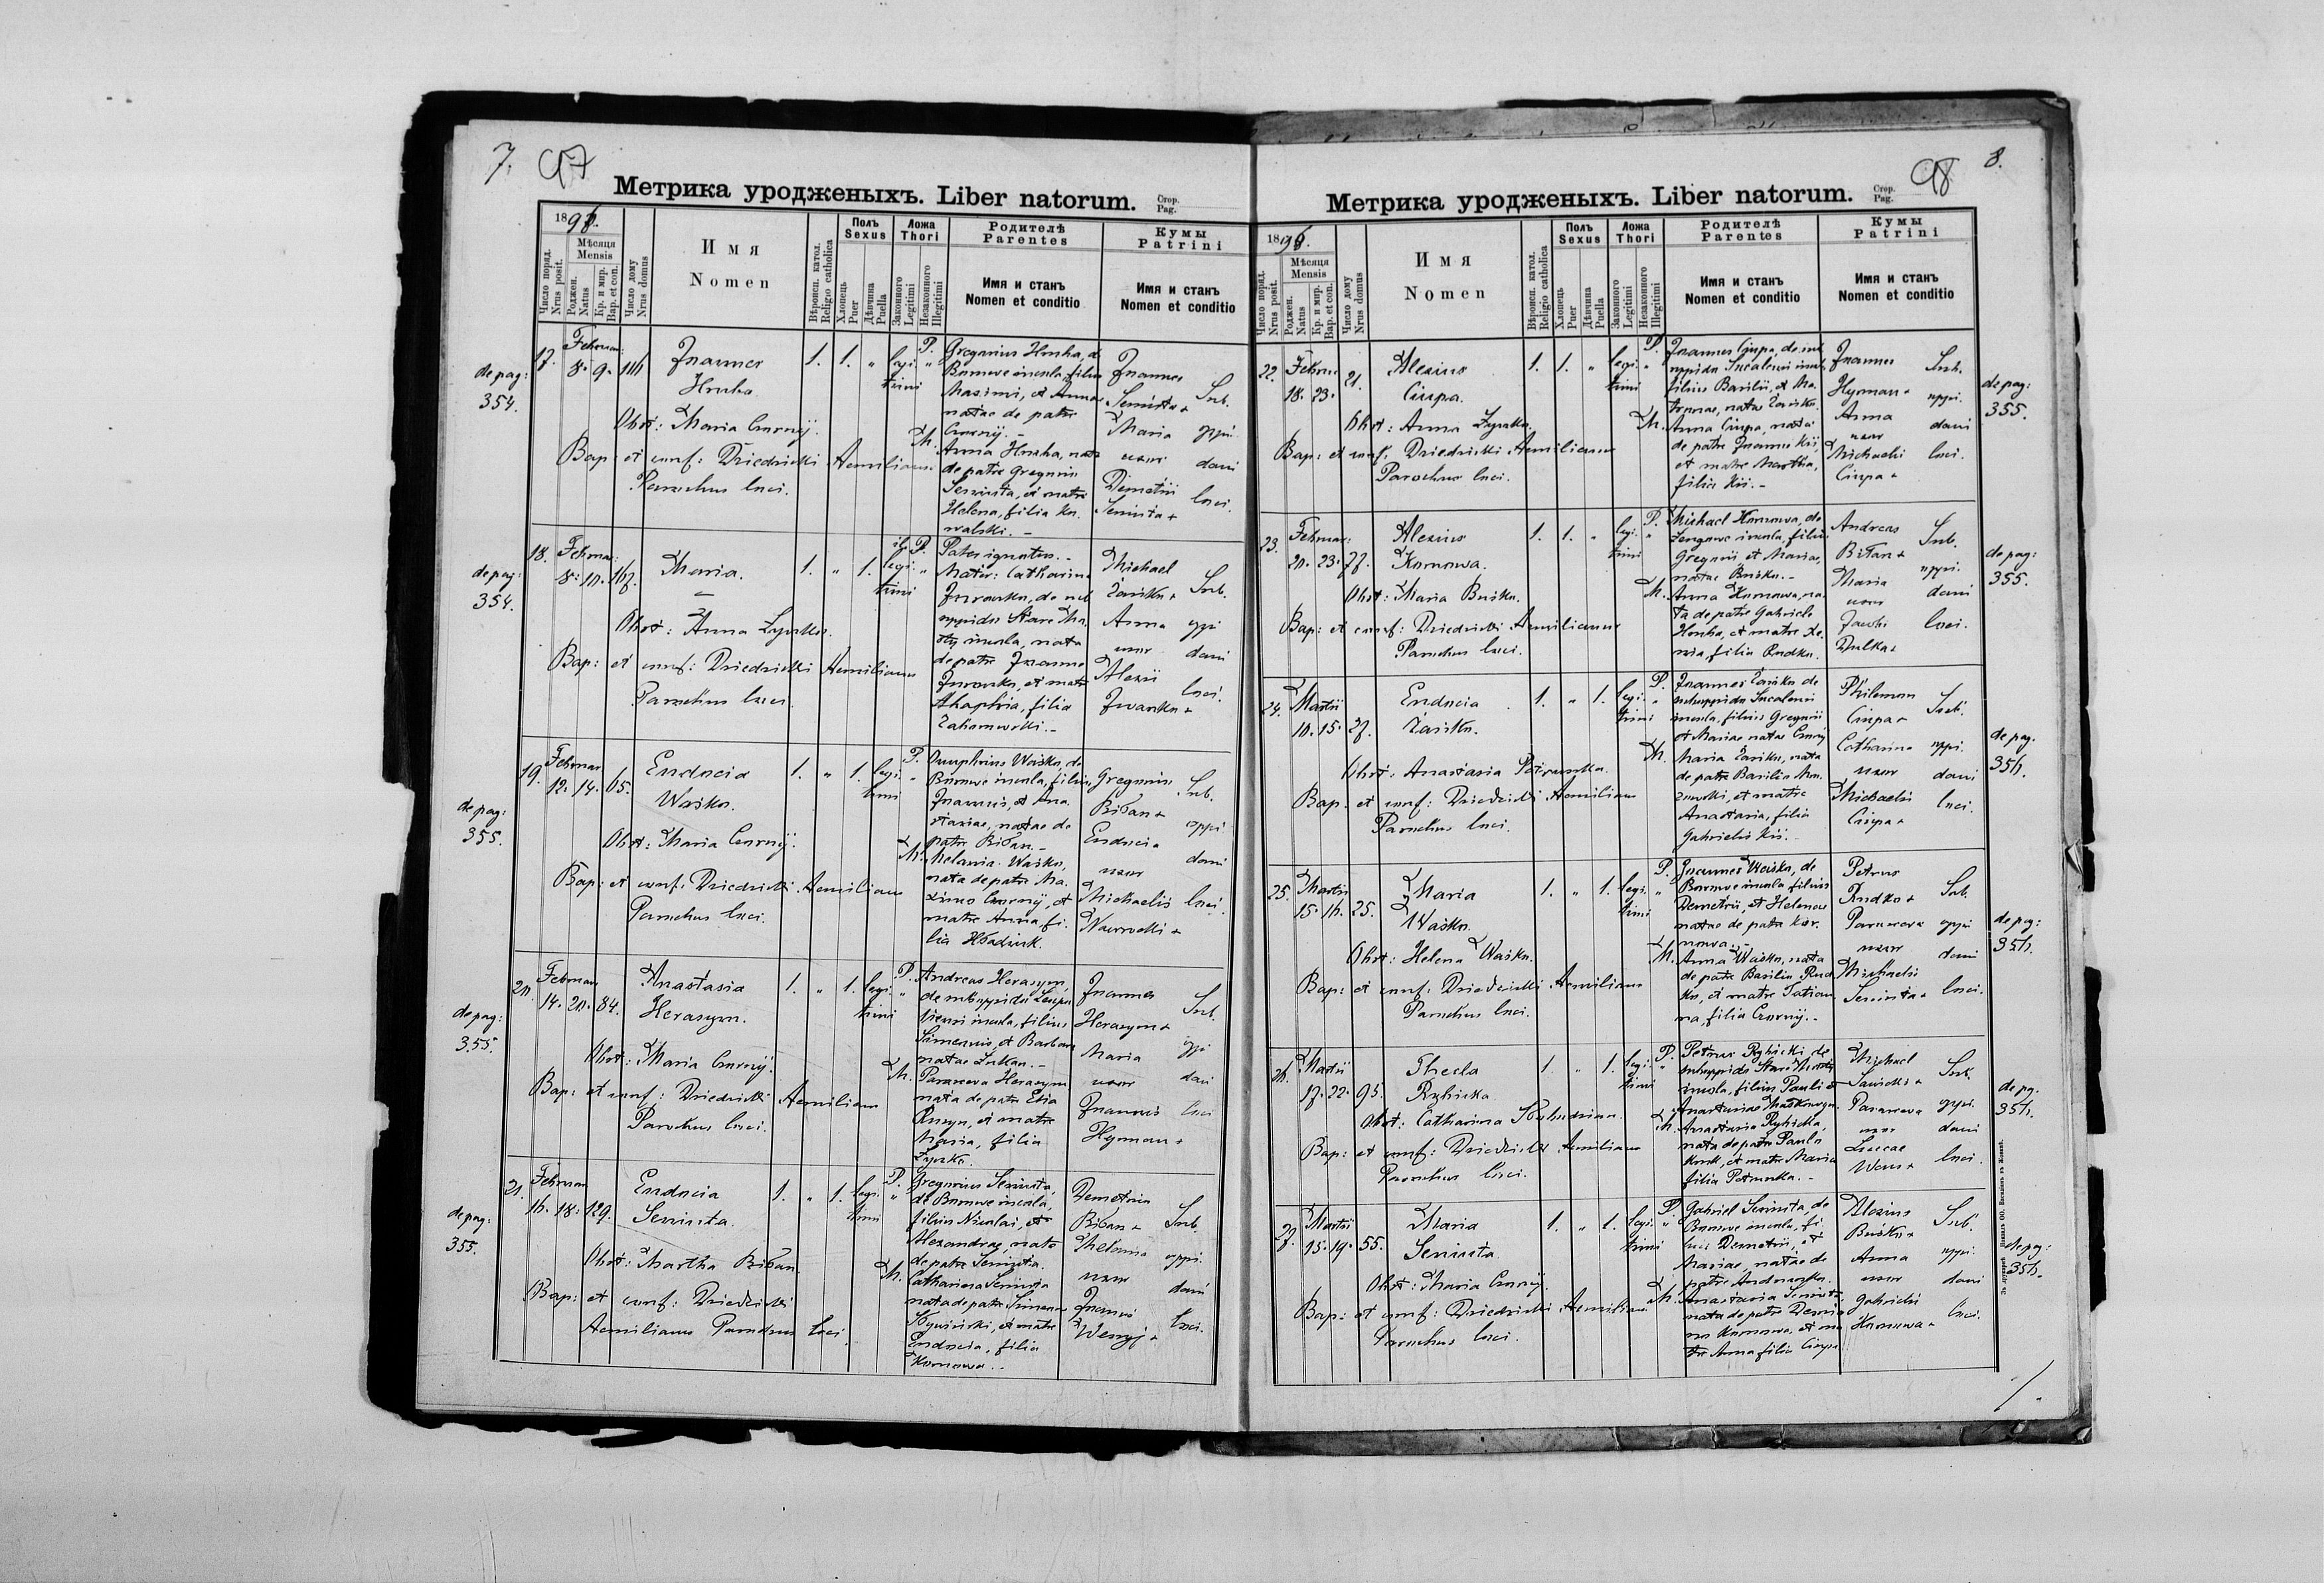 7. 97
Метрика уродженыхъ. Liber natorum. Стор. Pag.
1896.
Число поряд. Nrus posit.
Мѣсяця Mensis
Роджен. Natus
Кр. и мир. Bap. et con.
Число дому Nrus domus
Имя Nomen
Вѣроисп. катол. Religio catholica
Полъ Sexus
Хлопець Puer
Дѣвчина Puella
Ложа Thori
Законного Legitimi
Незаконного Illegitimi
Родителѣ Parentes
Имя и станъ Nomen et conditio
Кумы Patrini
Имя и станъ Nomen et conditio
de pag: 354.
17. Februar: 8. 9. Joannes 1. 1. " legi- "
Hruha timi
Obst: Maria Czornÿ.
Bap: et conf: Dziedzicki Aemilianus
Parochus loci.
P. Gregorius Hruha, de
Bunowe incola, filius
Maximi, et Annae
natae de patre
Czornÿ. -
M. Anna Hruha, nata
de patre Gregorio
Seniuta, et matre
Helena, filia Ko-
walski. -
Joannes
Seniuta +
Maria
uxor
Demetrii
Seniuta +
Sub.
oppi-
dani
loci.
de pag: 354.
18. Februar: 8. 10. 167. Maria. 1. " 1. ille- "
gi-
timi
Obst: Anna Zynko.
Bap: et conf: Dziedzicki Aemilianus
Parochus loci.
P. Pater ignotus. -
Mater: Catharina
oppido Stare Mia-
sty incola, nata
de patre Joanne
et matre
Ahaphia, filia
Michael
Zaisko +
Anna
uxor
Alexii
Iwanko +
Sub.
oppi
dani
loci.
de pag: 355.
19. Februar 12. 14. 65. Eudocia 1. " 1. legi- "
Waśko. timi
Obst: Maria Czornÿ.
Bap: et conf: Dziedzicki Aemilianus
Parochus loci.
P. Onuphrius Waśko, de
Bunowe incola, filius
Joannis, et Ana-
stasiae, natae de
patre Biłan. -
M. Melania Waśko,
nata de patre Ma-
ximo Czornÿ, et
matre Anna, fi-
lia
Gregorius
Biłan +
Eudocia
uxor
Michaelis
Nawrocki +
Sub.
oppi
dani
loci.
de pag: 355.
20. Februar 14. 20. 84. Anastasia 1. " 1. legi- "
Herasym. timi
Obst: Maria Czornÿ.
Bap: et conf: Dziedzicki Aemilianus
Parochus loci.
P. Andreas Herasym,
incola, filius
Simeonis, et Barbara
natae Lukan. -
M. Parasceva Herasym
nata de patre Elia
et matre
Maria, filia
Zynko.
Joannes
Herasym +
Maria
uxor
Joannis
Hyman +
Sub.
oppi
dani
loci
de pag: 355.
21. Februar 16. 18. 129. Eudocia 1. " 1. legi- "
Seniuta. timi
Obst: Martha Biłan.
Bap: et conf: Dziedzicki
Aemilianus Parochus loci.
P. Gregorius Seniuta,
de Bunowe incola,
filius Nicolai, et
Alexandrae, nata
de patre Seniuta.
M. Catharina Seniuta
nata de patre Simeone
et matre
Eudocia, filia
Komowa. -
Demetrius
Biłan +
Melania
uxor
Joannis
Sub.
oppi-
dani
loci.
98 8.
Метрика уродженыхъ. Liber natorum. Стор. Pag.
1896.
Число поряд. Nrus posit.
Мѣсяця Mensis
Роджен. Natus
Кр. и мир. Bap. et con.
Число дому Nrus domus
Имя Nomen
Вѣроисп. катол. Religio catholica
Полъ Sexus
Хлопець Puer
Дѣвчина Puella
Ложа Thori
Законного Legitimi
Незаконного Illegitimi
Родителѣ Parentes
Имя и станъ Nomen et conditio
Кумы Patrini
Имя и станъ Nomen et conditio
22. Februar 18. 23. 21. Alexius 1. 1. " legi- "
Ciupa. timi
Obst: Anna Zynko.
Bap: et conf: Dziedzicki Aemilianus
Parochus loci.
P. Joannes Ciupa, de sub
oppido incola
filius Basilii, et Ma-
tronae, natae Zaisko.
M. Anna Ciupa, nata
de patre Joanne Kii,
et matre Martha,
filia Kii. -
Joannes
Hyman +
Anna
uxor
Michaelis
Ciupa +
Sub.
oppi-
dani
loci.
de pag: 355.
23. Februar: 20. 23. 77. Alexius 1. 1. " legi- "
Komowa. timi
Obst: Maria Buśko.
Bap: et conf: Dziedzicki Aemilianus
Parochus loci.
P. Michael Komowa, de
incola, filius
Gregorii, et Mariae,
natae Buśko. -
M. Anna Komowa, na-
ta de patre Gabriele
Hruha, et matre Xe-
nia, filia Rudko.
Andreas
Biłan +
Maria
uxor
Jacobi
Dulka +
Sub.
oppi-
dani
loci.
de pag: 355.
24. Martii 10. 15. 27. Eudocia 1. " 1. legi- "
Zaisko. timi
Obst: Anastasia
Bap: et conf: Dziedzicki Aemilianus
Parochus loci.
P. Joannes Zaisko de
suboppido
incola, filius Gregorii
et Mariae natae Czornÿ
M. Maria Zaisko, nata
de patre Basilio
et matre
Anastasia, filia
Gabrielis Kii. -
Philemon
Ciupa +
Catharina
uxor
Michaelis
Ciupa +
Sub.
oppi-
dani
loci.
de pag. 356.
25. Martii 15. 16. 25. Maria 1. " 1. legi- "
Waśko. timi
Obst: Helena Waśko.
Bap: et conf: Dziedzicki Aemilianus
Parochus loci.
P. Joannes Waśko, de
Bunowe incola filius
Demetrii, et Helenae
natae de patre
M. Anna Waśko, nata
de patre Basilio Rud-
ko, et matre Tatian-
na, filia Czornÿ. -
Petrus
Rudko +
Parasceva
uxor
Michaelis
Seniuta +
Sub.
oppi
dani
loci.
de pag: 356.
26. Martii 17. 22. 95. Thecla 1. " 1. legi- "
Rybicka timi
Obst: Catharina
Bap: et conf: Dziedzicki Aemilianus
Parochus loci.
P. Petrus Rybicki, de
suboppido Stare Miasty
incola, filius Pauli et
Anastasiae
M. Anastasia Rybicka,
nata de patre Paulo
et matre Maria
filia Petrunka. -
Michael
Sawicki +
Parasceva
uxor
Lucae
Sub.
oppi.
dani
loci.
de pag. 356.
27. Martii 15. 19. 55. Maria 1. " 1. legi- "
Seniuta timi
Obst: Maria Czornÿ
Bap: et conf: Dziedzicki Aemilianus
Parochus loci.
P. Gabriel Seniuta, de
Bunowe incola, fi-
lius Demetrii, et
Mariae, natae de
patre
M. Anastasia Seniuta,
nata de patre
Komowa, et ma-
tre Anna filia Ciupa
Alexius
Buśko +
Anna
uxor
Gabrielis
Komowa +
Sub.
oppi.
dani
loci.
de pag: 356.